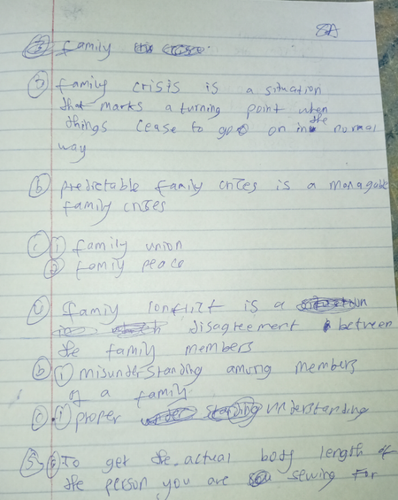 family
a) family crisis is a situation
that marks a turning point when
things cease to go on in the normal
way
b) predictable family crises is a manageable
family crises
c) i) family union
ii) family peace
family conflict is a
disagreement between
the family members
b) i) misunderstanding among members
of a family
c) i) proper understanding
5) a) To get the actual body length of
the person you are sewing for